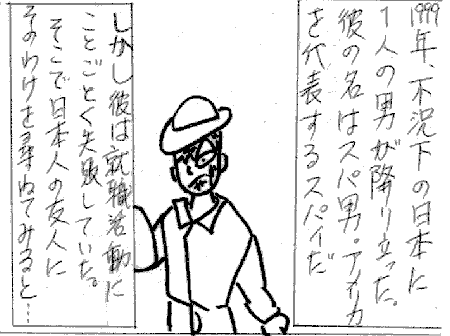 1999年、不況下の日本に
1人の男が降り立った。
彼の名はスパ男。アメリカ
を代表するスパイだ
しかし彼は就職活動に
ことごとく失敗していた。
そこで日本人の友人に
そのわけを尋ねてみると…